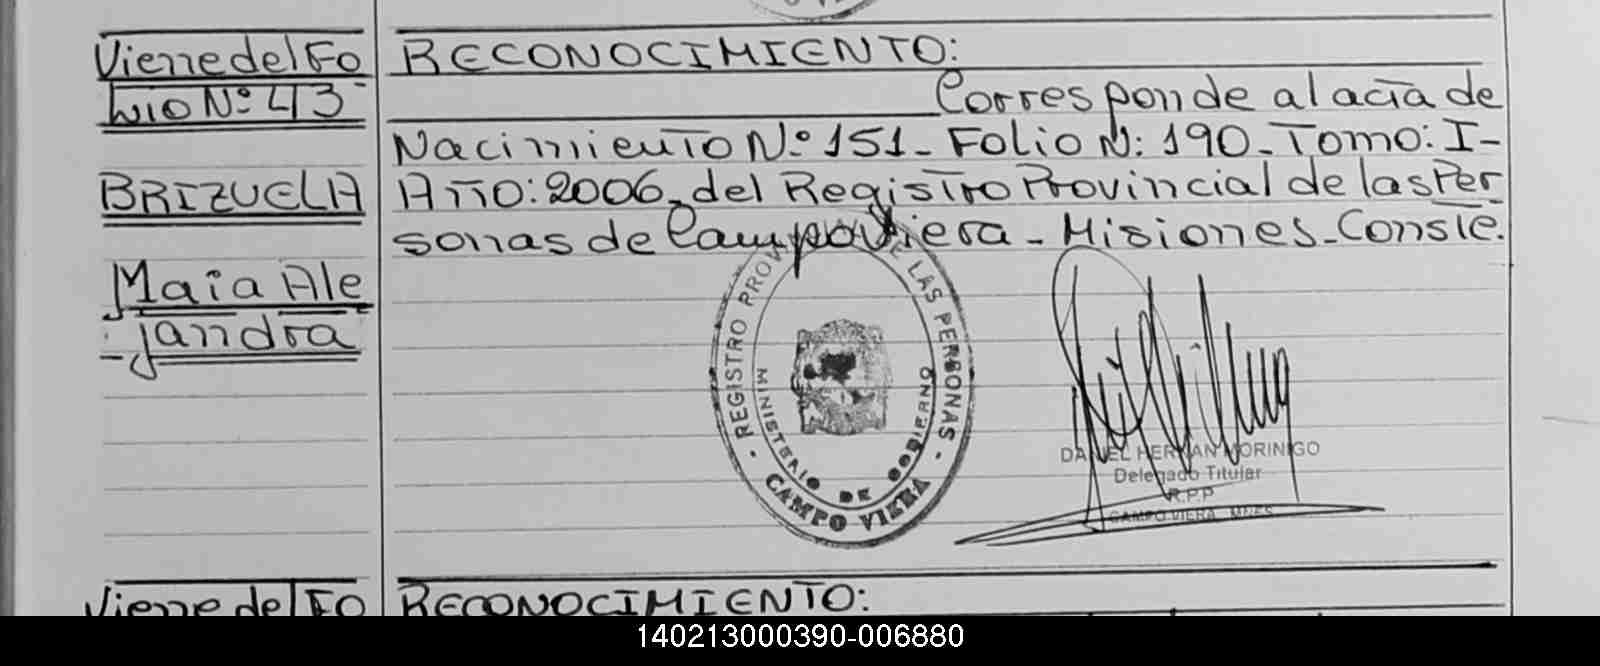 Viene del Fo
lio Nº 43
BRIZUELA
Maia Ale
jandra
RECONOCIMIENTO:
Corresponde al acta de
Nacimiento Nº 151- Folio N: 190- Tomo: I-
Año: 2006, del Registro Provincial de las Per
sonas de Campo Viera - Misiones - Conste.
REGISTRO PROV DE LAS PERSONAS
MINISTERIO DE GOBIERNO
CAMPO VIERA
DANIEL HERNAN MORINIGO
Delegado Titular
R.P.P
CAMPO VIERA MNES
Viene del Fo
RECONOCIMIENTO:
140213000390-006880